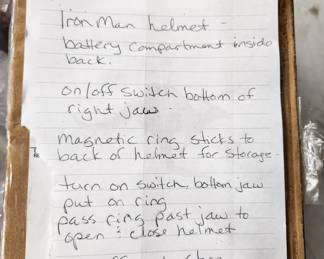 Iron Man helmet -
battery compartment inside
back.
on/off switch bottom of
right jaw.
magnetic ring, sticks to
back of helmet for storage.
turn on switch, bottom jaw
put on ring
pass ring past jaw to
open & close helmet